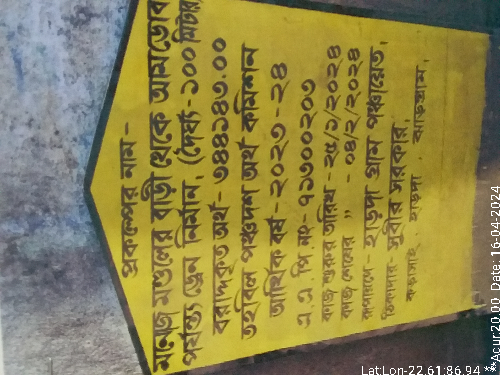 প্রকল্পের নাম-
মনোজ মণ্ডলের বাড়ী থেকে আমডোব
পর্যন্ত ড্রেন নির্মান, (দৈর্ঘ্য-১০০ মিটার)
বরাদ্দকৃত অর্থ- ৩৪৪১৪৩.০০
তহবিল পঞ্চদশ অর্থ কমিশন
আর্থিক বর্ষ-২০২৩-২৪
এ.এ. পি.নং- ৭১৩০০২০৩
কাজ শুরুর তারিখ - ২৫/১/২০২৪
কাজ শেষের " - ০৪/২/২০২৪
রূপায়নে- হাড়দা গ্রাম পঞ্চায়েত,
ঠিকাদার- সুবীর সরকার,
হাড়দা . ঝাড়গ্রাম.
LatLon-22.61:86.94 **
**Acur:20.00, Date: 16-04-2024